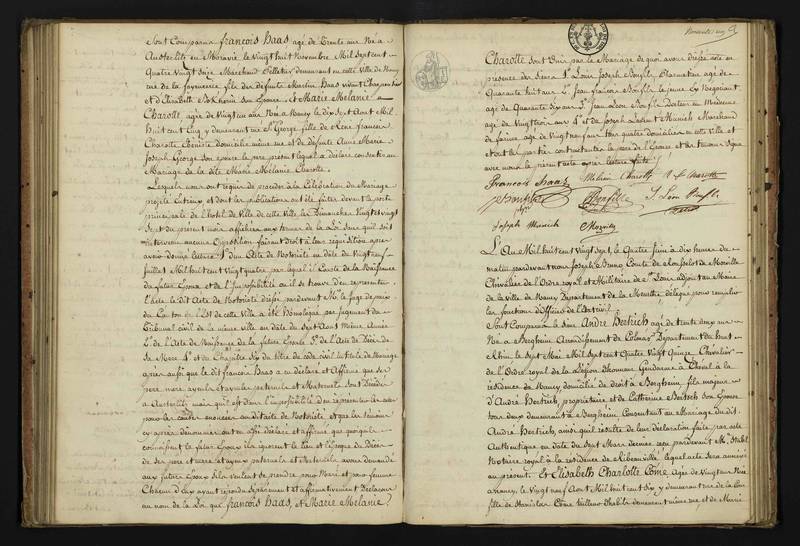 Sont Comparus françois haas agé de Trente ans Né a
Austerlitz en Moravie, le Vingt huit Novembre Mil Sept cent
Quatre Vingt Seize Marchand Pelletier demeurant en cette Ville de Nancy
rue de la fils de défunts Martin haas vivant Charpentier
et d'Elisabeth Son Epouse, et Marie Mélanie
Charotte agée de Vingt un ans Née a Nancy le dix Sept Aout Mil
huit cent Cinq y demeurant rue St George fille de René francois
Charotte Ebéniste domicilié même rue et de défunte Anne Marie
Joseph George Son epouse le pere présent lequel a déclaré consentir au
Mariage de la dite Marie Mélanie Charotte.
Lesquels nous ont requis de procéder à la Célébration du Mariage
projeté Entr'eux et dont les publications ont été faites devant la porte
principale de l'hotel de Ville de cette Ville les Dimanches Vingt et Vingt
Sept du présent mois affichées aux termes de la Loi sans qu'il soit
intervenu aucune Opposition faisant droit à leur requisition après
avoir donné lecture 1° d'un Acte de Notoriété en date du Vingt neuf
Juillet Mil huit cent Vingt quatre par lequel il Conste de la Naissance
du futur Epoux et de l'Impossibilité où il se trouve d'en représenter
l'Acte, le dit Acte de Notoriété dressé pardevant Mr. le Juge de paix
du Canton de l'Est de cette Ville a été Homologué par Jugement du
Tribunal civil de la même ville en date du Sept Aout même Année
2° de l'Acte de Naissance de la future Epouse 3° de l'Acte de Décès de
Sa Mere 4° et du Chapitre Six du titre de code civil intitulé du Mariage
après aussi que le dit françois haas a eu déclaré et Affirmé que Ses
pere, mere, ayeuls et ayeules paternels et Maternels Sont Décédés
a Austerlitz mais qu'il est dans l'impossibilité d'en représenter les actes
pour les causes enoncées au dit acte de Notoriété et que les témoins
cy après dénommés ont aussi déclaré et affirmé que quoiqu'ils
connaissent le futur Epoux ils ignorent le lieu et l'Epoque du Décès
de Ses pere et mere et ayeux paternels et Maternels avons demandé
aux futurs Epoux S'ils veulent se prendre pour Mari et pour femme
Chacun d'eux ayant répondu Séparément et affirmativement Déclarons
au nom de la Loi que françois haas, et Marie Mélanie
Charotte Sont Unis par le Mariage de quoi avons dressé acte en
présence des Sieurs 1° Louis Joseph agé de
Quarante huit ans 2° Jean francois le jeune Négociant
agé de Quarante Six ans 3° Jean Léon Docteur en Médecine
agé de Vingt trois ans 4° et de Joseph Laurent Munich Marchand
de farine agé de Vingt neuf ans tous quatre domiciliés en cette Ville et
ont les parties contractantes le pere de l'Epouse et les témoins Signé
avec nous le présent acte après lecture faite.
François haas Mélanie Charotte R f Charotte
J. Léon
Joseph Munich
L'An Mil huit cent Vingt Sept, le Quatre Juin à dix heures du
matin pardevant nous Joseph Bruno Comte de Morville
Chevalier de l'Ordre royal et Militaire de St. Louis adjoint au Maire
de la ville de Nancy Département de la Meurthe délégué pour remplir
les fonctions d'Officier de l'Etat civil
Sont Comparus le Sieur André Bertrich agé de trente deux ans
Né a Bergheim Arrondissement de Colmar Département du haut
Rhin le Sept Mai Mil Sept cent Quatre Vingt Quinze Chevalier
de l'Ordre royal de la Légion d'honneur Gendarme à Cheval à la
résidence de Nancy domicilié de droit à Bergheim, fils majeur
d'André Bertrich, propriétaire et de Catherine Son Epouse
tous deux demeurant à Bergheim Consentant au Mariage du dit
André Bertrich, ainsi qu'il résulte de leur déclaration faite par acte
Authentique en date du Sept Mars dernier reçu pardevant M.
Notaire royal à la résidence de Ribeauvillé lequel acte Sera annexé
au présent. Et Elisabeth Charlotte Côme Agée de Vingt un ans Née
a Nancy, le Vingt neuf Aout Mil huit cent Six y demeurant rue de la
fille de Stanislas Côme domicilié même rue, et de Marie